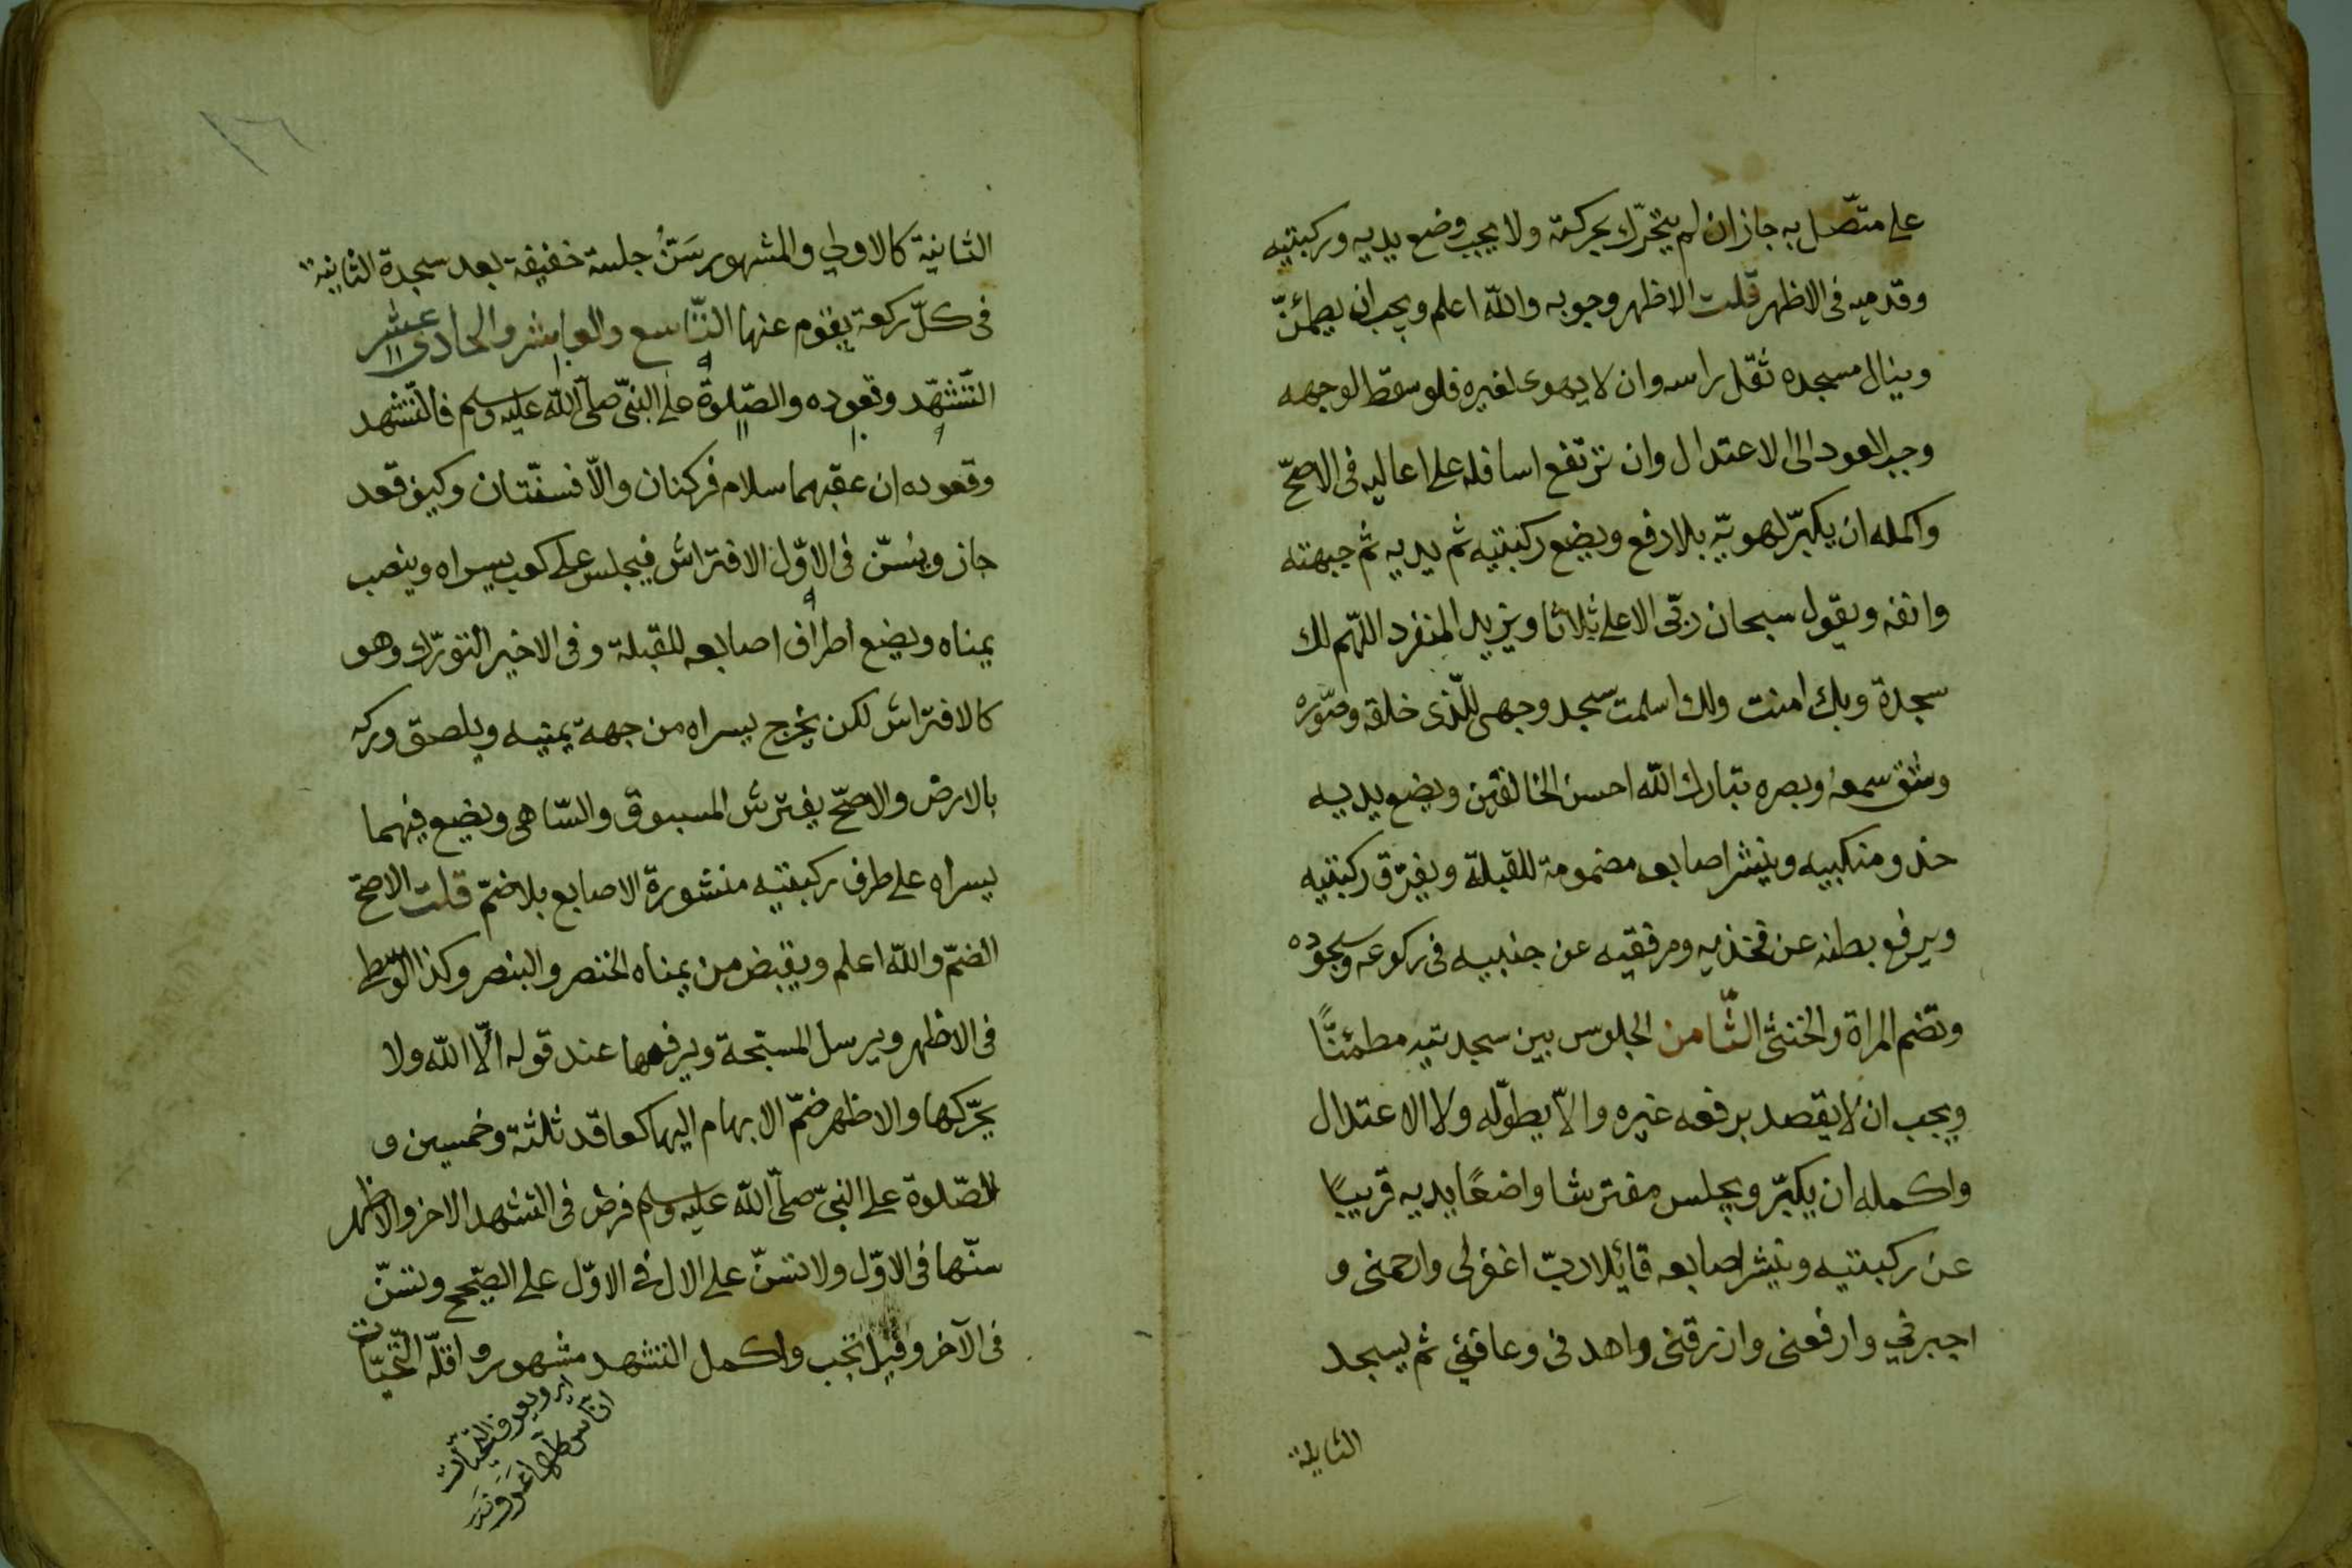 على متصّل به جاز ان لم يتحرّك بحركته ولا يجب وضع يديه وركبتيه
وقدميه فى الاظهر قلت الاظهر وجوبه والله اعلم ويجب ان يطمئنّ
وينال مسجده ثقل راسه وان لا يهوى لغيره فلو سقط لوجهه
وجب العود الى الاعتدال وان ترتفع اسافله على اعاليه فى الاصحّ
واكمله ان يكبّر لهويّه بلا رفع ويضع ركبتيه ثم يديه ثم جبهته
وانفه ويقول سبحان ربّى الاعلى ثلاثا ويزيد المنفرد اللهم لك
سجدة وبك امنت ولك اسلمت سجد وجهى للّذى خلقه وصوّره
وشق سمعه وبصره تبارك الله احسن الخالقين ويضع يديه
حذو منكبيه وينشر اصابعه مضمومة للقبلة ويفرّق ركبتيه
ويرفع بطنه عن فخذيه ومرفقيه عن جنبيه فى ركوعه وسجوده
وتضم المراة والخنثى الثّامن الجلوس بين سجدتيه مطمئنًّا
ويجب ان لا يقصد برفعه غيره والاّ يطوّله ولا الاعتدال
واكمله ان يكبّر ويجلس مفترشا واضعًا يديه قريبًا
عن ركبتيه وينشر اصابعه قائلا ربّ اغفرلى وارحمنى و
اجبرني وارفعنى وارزقنى واهدنى وعافني ثم يسجد
الثانية
١٦
الثانية كالاولي والمشهور سَنُّ جلسة خفيفة بعد سجدة الثانية
فى كلّ ركعة يقوم عنها التّاسع والعاشر والحادى عشر
التّشهّد وقعوده والصّلوة على النبىّ صلّى الله عليه وسلم فالتشهد
وقعوده ان عقبهما سلام فركنان والّا فسنّتان وكيف قعد
جاز ويسنّ فى الاوّل الافتراش فيجلس على كعب يسراه وينصب
يمناه ويضع اطراف اصابعه للقبلة وفى الاخير التورّك وهو
كالافتراش لكن يخرج يسراه من جهة يمينه ويلصق وركه
بالارض والاصحّ يفترش المسبوق والسّاهى ويضع فيهما
يسراه على طرف ركبتيه منشورة الاصابع بلا ضمّ قلت الاصحّ
الضمّ والله اعلم ويقبض من يمناه الخنصر والبنصر وكذا الوسطى
فى الاظهر ويرسل المسبّحة ويرفعها عند قوله الّا الله ولا
يحرّكها والاظهر ضمّ الابهام اليها كعاقد ثلثة وخمسين و
الصّلوة على النبىّ صلّى الله عليه وسلم فرض فى التشهد الاخر والاظهر
سنّها فى الاوّل ولا تسنّ على الال فى الاوّل على الصّحيح وتسنّ
فى الآخر وقيل تجب واكمل التشهد مشهور واقلّه التّحيّات